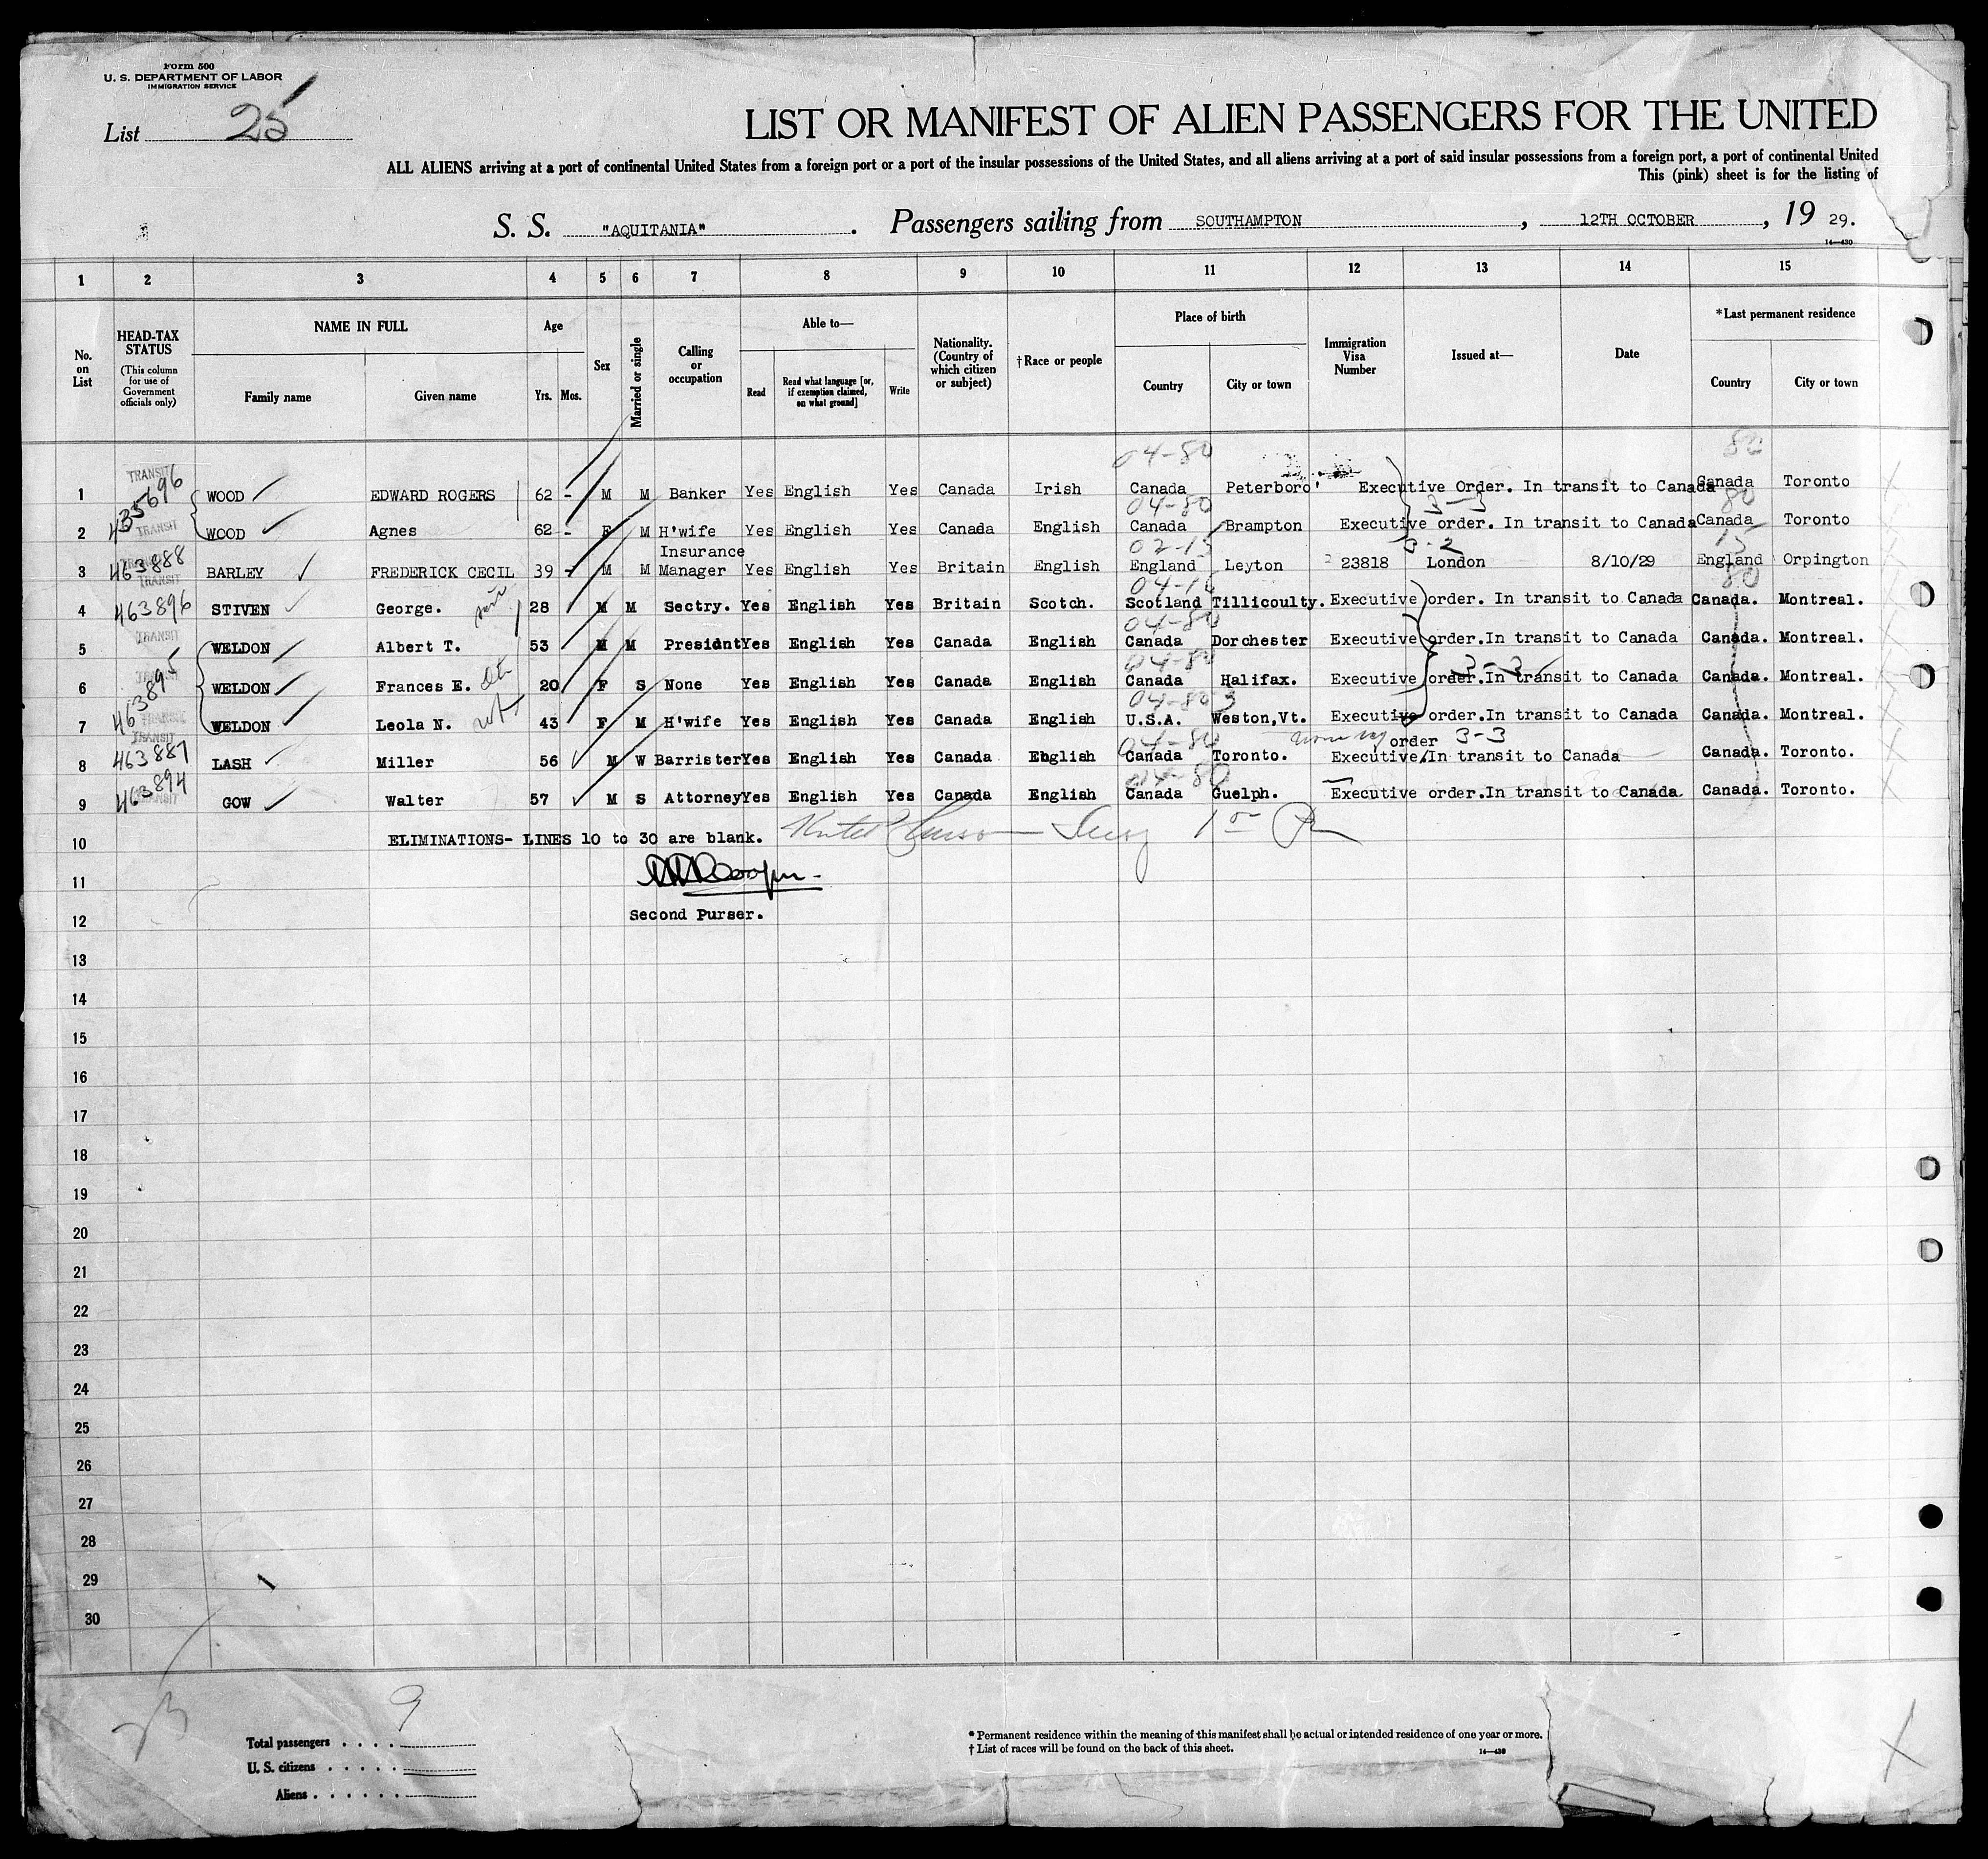 Form 500
U. S. DEPARTMENT OF LABOR
IMMIGRATION SERVICE
List 25
LIST OR MANIFEST OF ALIEN PASSENGERS FOR THE UNITED
ALL ALIENS arriving at a port of continental United States from a foreign port or a port of the insular possessions of the United States, and all aliens arriving at a port of said insular possessions from a foreign port, a port of continental United
This (pink) sheet is for the listing of
S. S. "AQUITANIA" . Passengers sailing from SOUTHAMPTON , 12TH OCTOBER , 19 29.
14—430
1 2 3 4 5 6 7 8 9 10 11 12 13 14 15
No. on List
HEAD-TAX STATUS
(This column for use of Government officials only)
NAME IN FULL
Family name Given name
Age
Yrs. Mos.
Sex
Married or single
Calling or occupation
Able to—
Read
Read what language [or, if exemption claimed, on what ground]
Write
Nationality. (Country of which citizen or subject)
†Race or people
Place of birth
Country City or town
Immigration Visa Number
Issued at—
Date
*Last permanent residence
Country City or town
04-80 80
TRANSIT
1 435696 WOOD EDWARD ROGERS 62 - M M Banker Yes English Yes Canada Irish Canada Peterboro' Executive Order. In transit to Canada Canada Toronto
04-80 3-3 80
2 TRANSIT WOOD Agnes 62 - F M H'wife Yes English Yes Canada English Canada Brampton Executive order. In transit to Canada Canada Toronto
02-15 3-2 15
3 463888 TRANSIT BARLEY FREDERICK CECIL 39 - M M Insurance Manager Yes English Yes Britain English England Leyton 23818 London 8/10/29 England Orpington
80
4 463896 STIVEN George. 28 M M Sectry. Yes English Yes Britain Scotch. Scotland Tillicoulty. Executive order. In transit to Canada Canada. Montreal.
04-80
5 TRANSIT WELDON Albert T. 53 M M Presidnt Yes English Yes Canada English Canada Dorchester Executive order.In transit to Canada Canada. Montreal.
04-80 3-3
6 463895 WELDON Frances E. 20 F S None Yes English Yes Canada English Canada Halifax. Executive order.In transit to Canada Canada. Montreal.
04-80 3
7 TRANSIT WELDON Leola N. 43 F M H'wife Yes English Yes Canada English U.S.A. Weston,Vt. Executive order.In transit to Canada Canada. Montreal.
04-80 order 3-3
8 TRANSIT 463887 LASH Miller 56 M W Barrister Yes English Yes Canada English Canada Toronto. Executive.In transit to Canada Canada. Toronto.
04-80
9 463894 TRANSIT GOW Walter 57 M S Attorney Yes English Yes Canada English Canada Guelph. Executive order.In transit to Canada Canada. Toronto.
10 ELIMINATIONS- LINES 10 to 30 are blank.
11
12 Second Purser.
13
14
15
16
17
18
19
20
21
22
23
24
25
26
27
28
29
30
23
9
Total passengers . . . .
U. S. citizens . . . . .
Aliens . . . . . .
* Permanent residence within the meaning of this manifest shall be actual or intended residence of one year or more.
† List of races will be found on the back of this sheet.
14—430